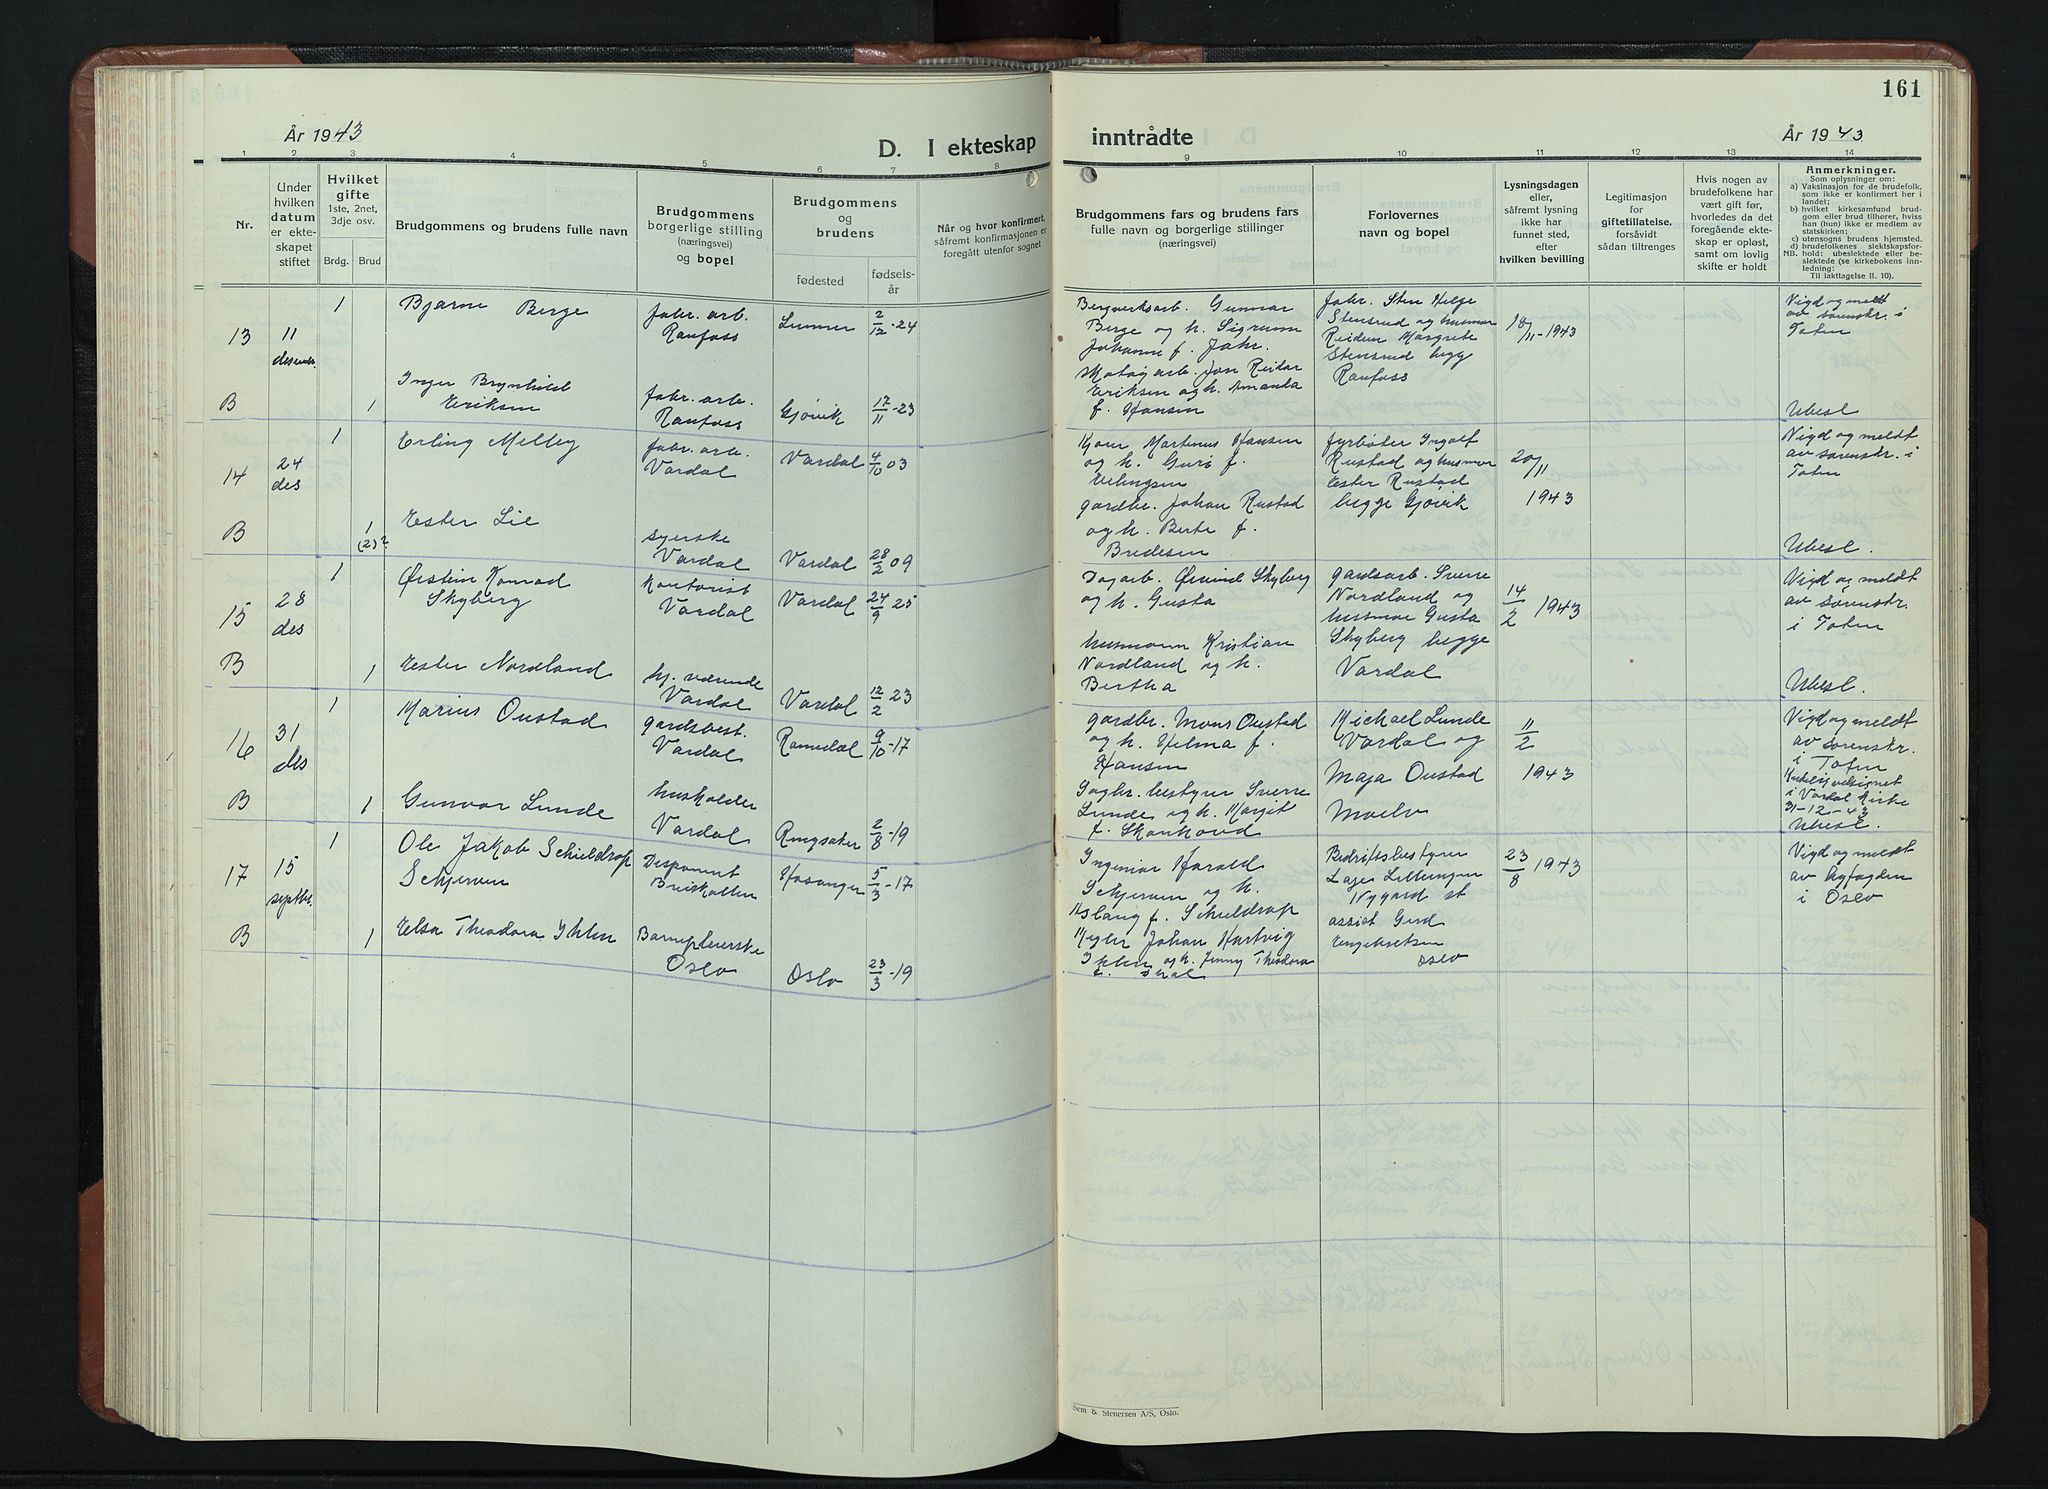 161
År 1943
D. I ekteskap
inntrådte
År 1943
1 2 3 4 5 6 7 8 9 10 11 12 13 14
Nr.
Under
hvilken
datum
er ekte-
skapet
stiftet
Hvilket
gifte
1ste, 2net,
3dje osv.
Brdg. Brud
Brudgommens og brudens fulle navn
Brudgommens
borgerlige stilling
(næringsvei)
og bopel
Brudgommens
og
brudens
fødested
fødsels-
år
Når og hvor konfirmert,
såfremt konfirmasjonen er
foregått utenfor sognet
Brudgommens fars og brudens fars
fulle navn og borgerlige stillinger
(næringsvei)
Forlovernes
navn og bopel
Lysningsdagen
eller,
såfremt lysning
ikke har
funnet sted,
efter
hvilken bevilling
Legitimasjon
for
giftetillatelse,
forsåvidt
sådan tiltrenges
Hvis nogen av
brudefolkene har
vært gift før,
hvorledes da det
foregående ekte-
skap er opløst,
samt om lovlig
skifte er holdt
Anmerkninger.
Som oplysninger om:
a) Vaksinasjon for de brudefolk,
som ikke er konfirmert her i
landet;
b) hvilket kirkesamfund brud-
gom eller brud tilhører, hviss
han (hun) ikke er medlem av
statskirken;
c) utensogns brudens hjemsted.
d) brudefolkenes slektskapsfor-
NB. hold: ubeslektede eller be-
slektede (se kirkebokens inn-
ledning:
Til iakttagelse II. 10).
13
11
desembr.
1
Bjarne Berge
fabr. arb.
Raufoss
Lunner
2/12-24
Bergverksarb. Gunnar
Berge og h. Sigrunn
Johanne f. Jahr.
fabr. Sten Helge
Stensrud og husmor
Reidun Margrete
Stensrud begge
Raufoss
18/11-1943
Vigd og meldt
av sorenskr. i
Toten
B
1
Inger Brynhild
Eriksen
fabr. arb.
Raufoss
Gjøvik
17/11-23
Jon Reidar
Eriksen og h. Amanda
f. Hansen
Ubesl
14
24
des
1
Erling Melby
fabr. arb.
Vardal
Vardal
4/10 03
Martinus Hansen
og h. Guri f.
fyrbøter Ingolf
Rustad og husmor
Ester Rustad
begge Gjøvik
20/11
1943
Vigd og meldt
av sorenskr. i
Toten
B
1
(2)?
Ester Lie
syerske
Vardal
Vardal
28/2 09
gardbr. Johan Rustad
og h. Berte f.
Bredesen
Ubesl.
15
28
des
1
Øistein Konrad
Skyberg
kontorist
Vardal
Vardal
24/9 25
Dagarb. Øivind Skyberg
og h. Gusta
gardsarb. Sverre
Nordland og
husmor Gusta
Skyberg begge
Vardal
14/2 1943
Vigd og meldt
av sorenskr.
i Toten
B
1
Ester Nordland
hj. værende
Vardal
Vardal
12/2 23
husmann Kristian
Nordland og h.
Bertha
Ubesl.
16
31
des
1
Marius Oustad
gardsbest.
Vardal
Romedal
9/10-17
gardbr. Mons Oustad
og h. Helma f.
Hansen
Michael Lunde
Vardal og
Maja Oustad
Moelv
11/2
1943
Vigd og meldt
av sorenskr.
i Toten
Kirkelig velsignet
i Vardal Kirke
31-12-43
Ubesl.
B
1
Gunvor Lunde
husholder
Vardal
Ringsaker
2/8-19
Sagbr. bestyrer Sverre
Lunde og h. Margit
f.
17
15
septbr.
1
Ole Jakob Schieldrop
Schjerven
Disponent
Breiskallen
Hosanger
5/3-17
Ingeniør Harald
Schjerven og h.
Aslaug f. Schieldrop
Bedriftsbestyrer
Nygard st
assist Gerd
Engebretsen
Oslo
23/8 1943
Vigd og meldt
av byfogden
i Oslo
B
1
Elsa Theodora Ihlen
Barnepleierske
Oslo
Oslo
23/3-19
Megler Johan Hartvig
Ihlen og h. Jenny Theodora
Sem & Stenersen A/S, Oslo.